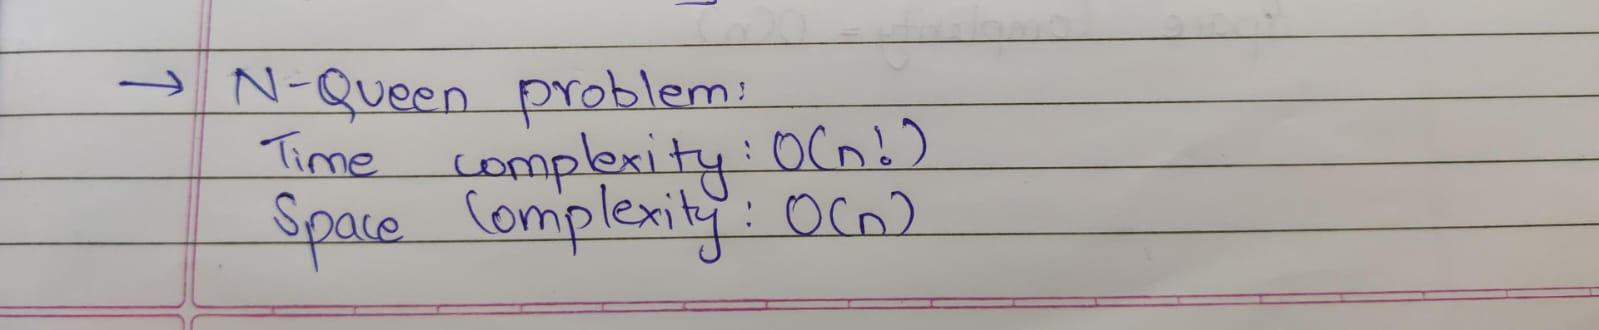 → N-Queen problem:
Time complexity: O(n!)
Space Complexity: O(n)